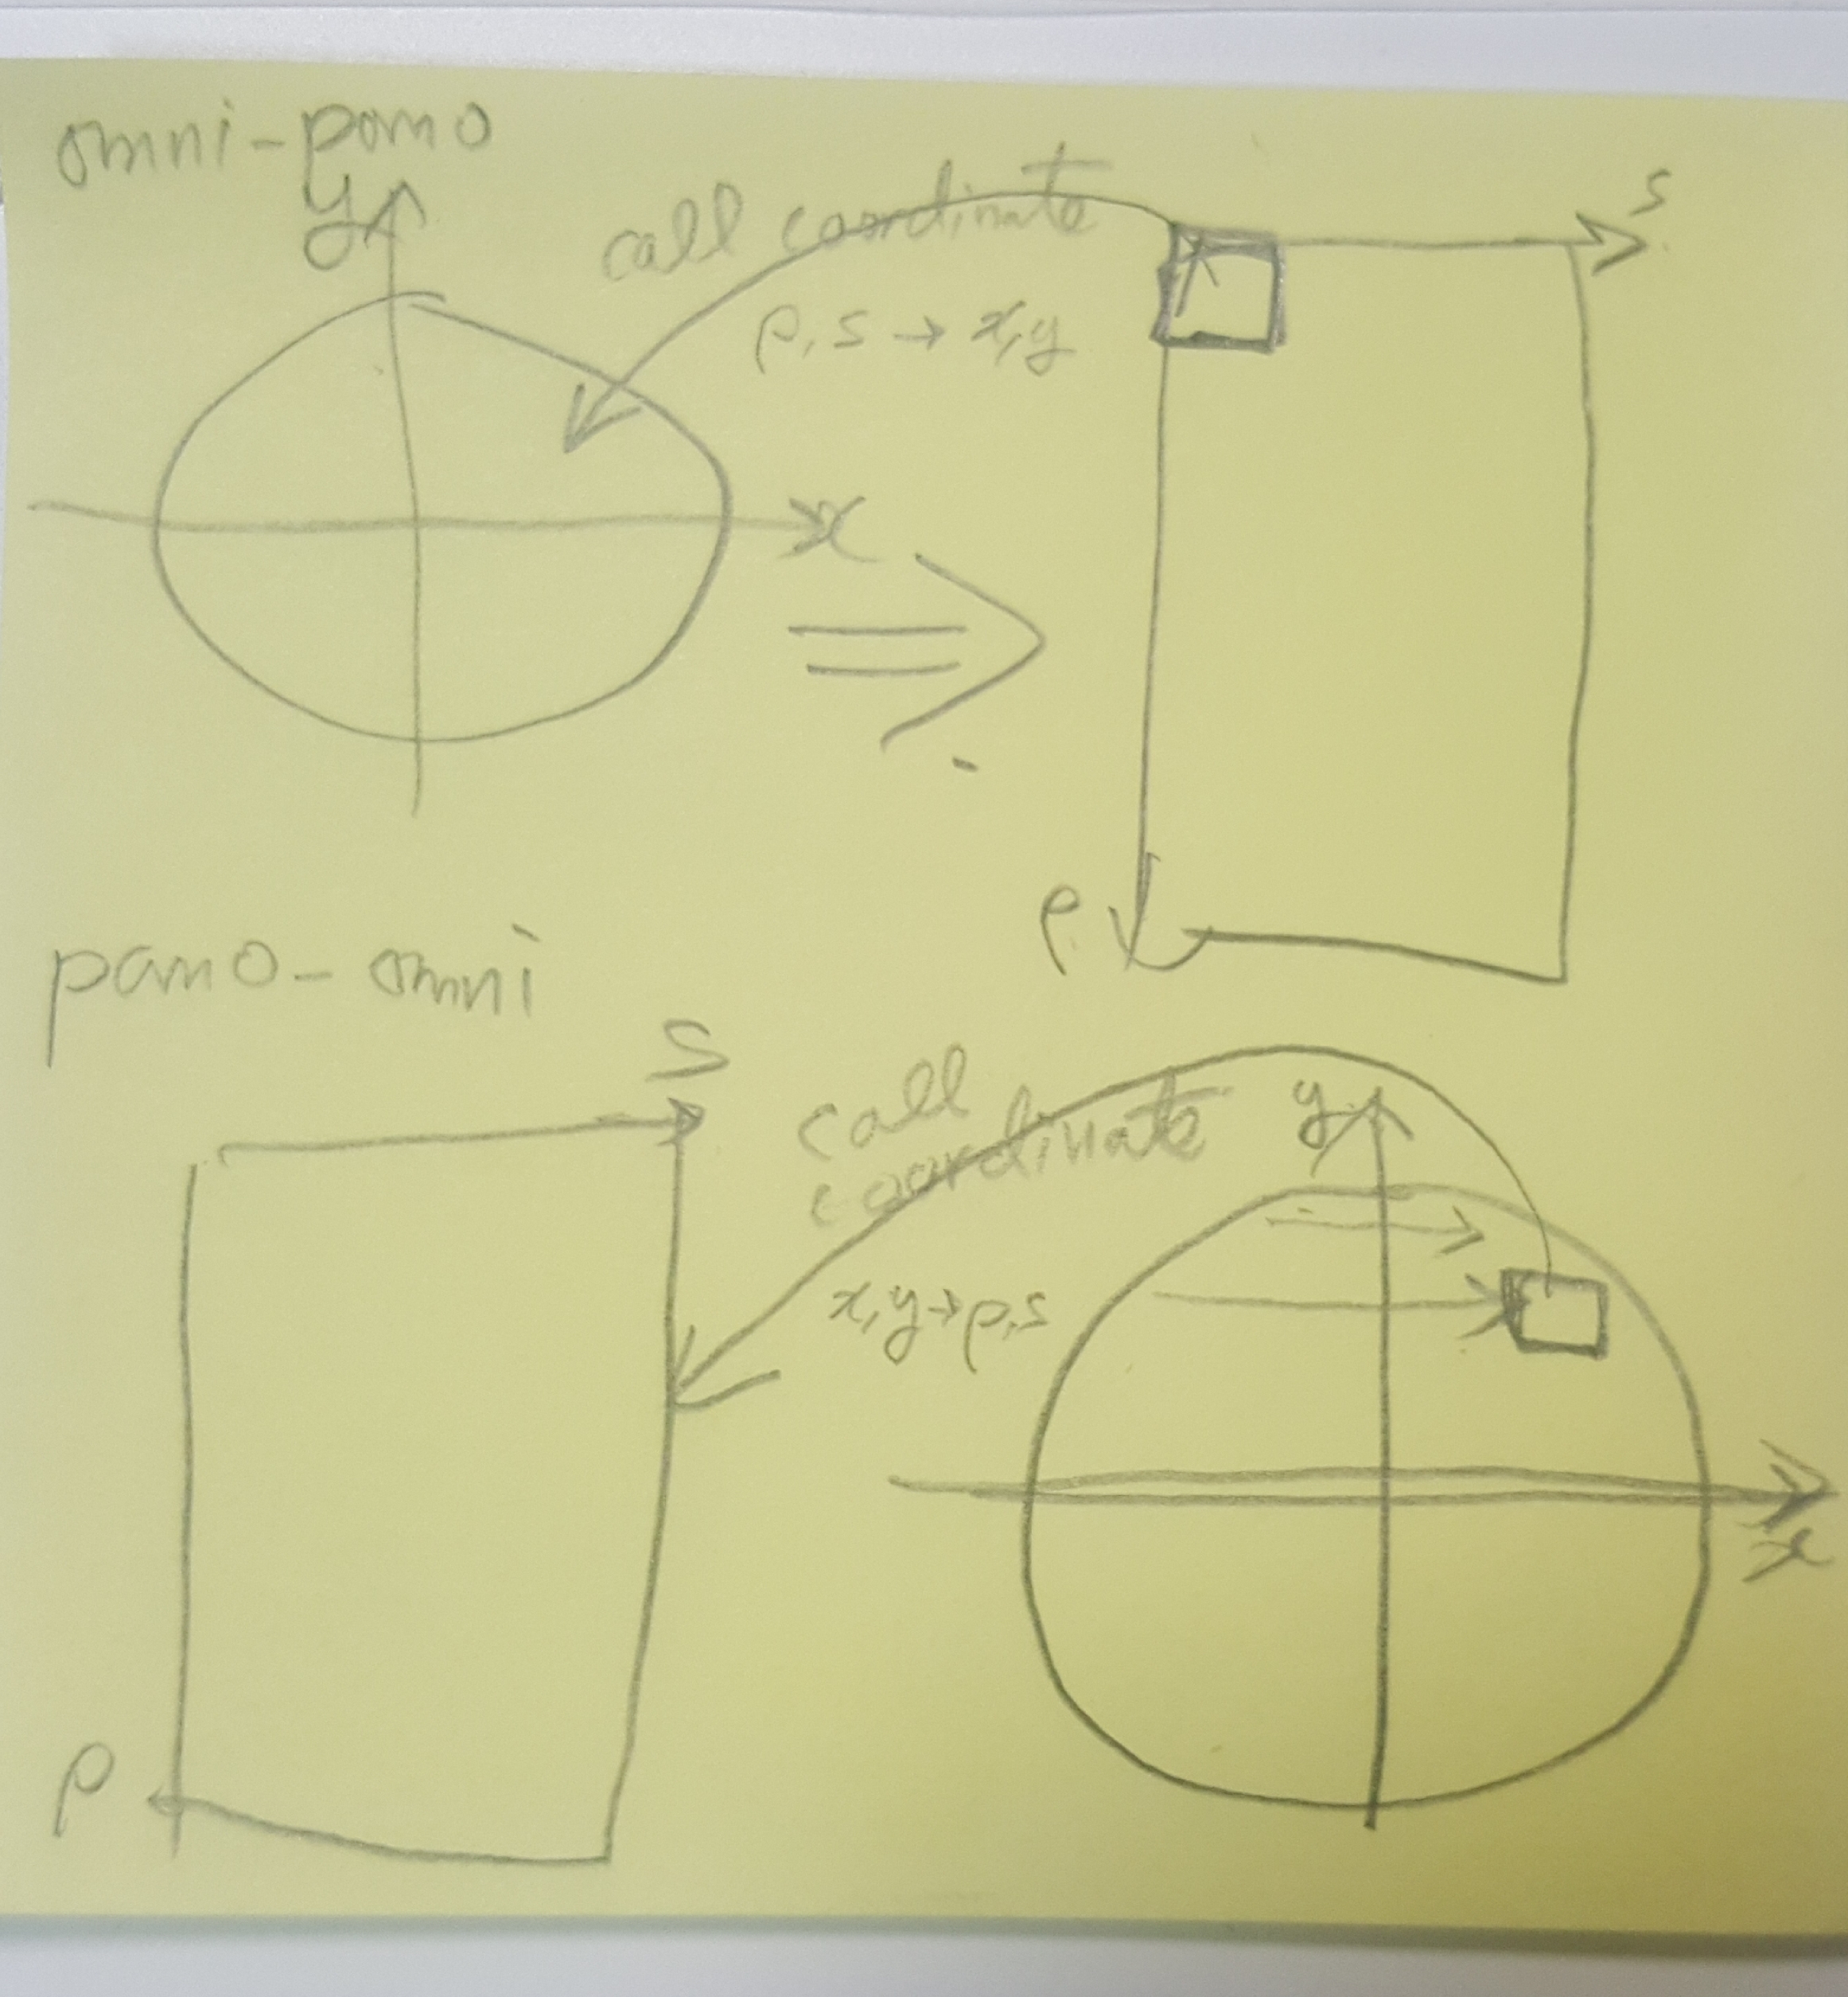 omni-pano
y
call coordinate
s
ρ, s → x, y
x
ρ
pano-omni
s
call
coordinate
y
x, y → ρ, s
x
ρ